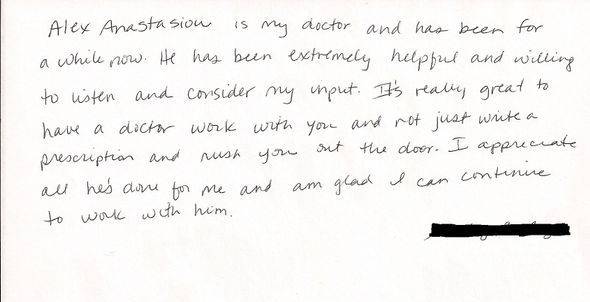 Alex Anastasiou is my doctor and has been for
a while now. He has been extremely helpful and willing
to listen and consider my input. It's really great to
have a doctor work with you and not just write a
prescription and rush you out the door. I appreciate
all he's done for me and am glad I can continue
to work with him.